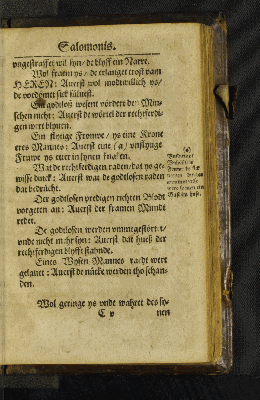 Salomonis.
vngestraffet wil syn / de blyfft ein Narre.
Wol fram ys / de erlanget trost vam
HEREN: Auerst wol modtwillich ys /
de vordömet sick süluest.
Ein godtloß wesent vördert den Min-
schen nicht: Auerst de wörtel der rechtferdi-
gen wert blyuen.
Ein flytige Frouwe / ys eine Krone
eres Mannes: Auerst eine (a) vnflytige
Frouwe ys euer in synen
Wat de rechtferdigen raden / dat ys ge-
wisse : Auerst wat de godtlosen raden
dat
Der godtlosen predigen richten Blodt
vorgeten an: Auerst der framen Mundt
reddet.
De godtlosen werden vmmegestörtet /
vnde nicht mehr syn: Auerst dat Huß der
rechtferdigen blyfft stahnde.
Eines Wysen Mannes radt wert
gelauet: Auerst de werden tho schan-
den.
(a)
Wol geringe ys vnde wahret des sy-
C v
nen